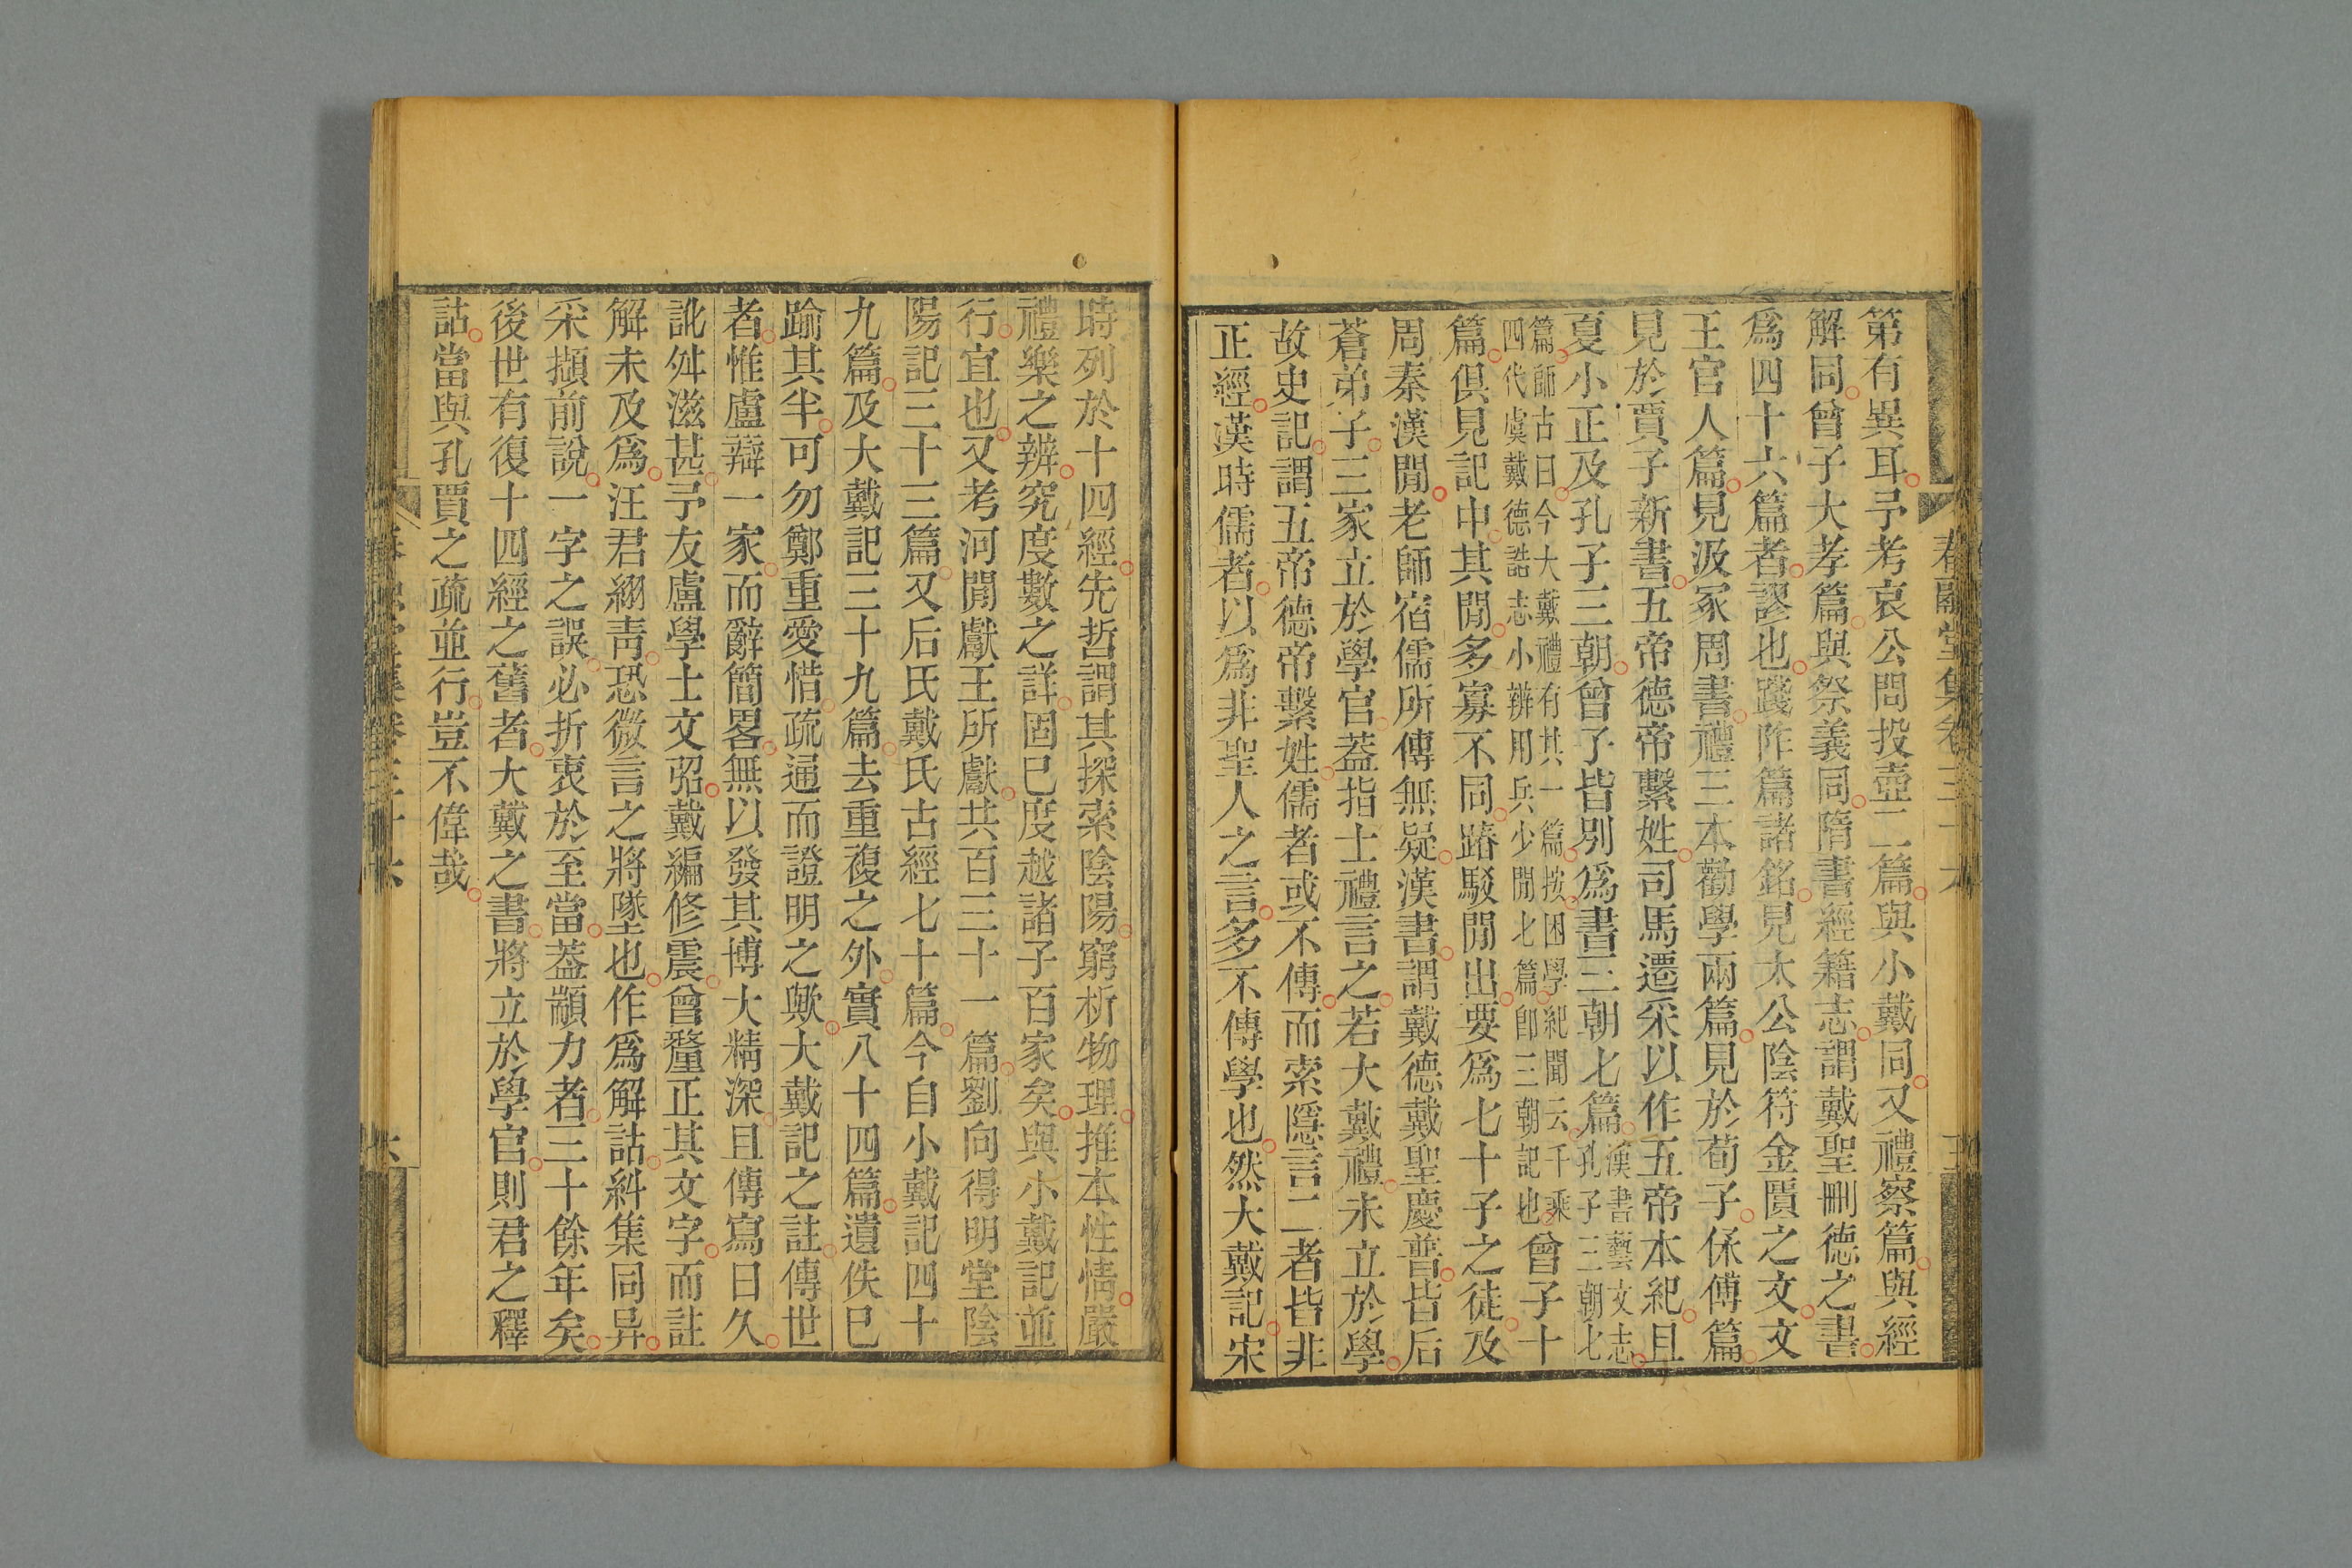 第有異耳予考哀公問投壺二篇與小戴同又禮察篇與經
解同曾子大孝篇與祭義同隋書經籍志謂戴聖刪德之書
爲四十六篇者謬也踐阼篇諸銘見太公陰符金匱之文文
王官人篇見汲冢周書禮三本勸學兩篇見於荀子保傅篇
見於賈子新書五帝德帝繫姓司馬遷采以作五帝本紀且
夏小正及孔子三朝曾子皆別爲書三朝七篇漢書藝文志孔子三朝七
篇師古曰今大戴禮有其一篇按困學紀聞云千乘四代虞戴德誥志小辨用兵少閒七篇卽三朝記也曾子十
篇俱見記中其閒多寡不同踳駁閒出要爲七十子之徒及
周秦漢閒老師宿儒所傳無疑漢書謂戴德戴聖慶普皆后
蒼弟子三家立於學官蓋指士禮言之若大戴禮未立於學
故史記謂五帝德帝繫姓儒者或不傳而索隱言二者皆非
正經漢時儒者以爲非聖人之言多不傳學也然大戴記宋
時列於十四經先哲謂其探索陰陽窮析物理推本性情嚴
禮樂之辨究度數之詳固已度越諸子百家矣與小戴記並
行宜也又考河閒獻王所獻共百三十一篇劉向得明堂陰
陽記三十三篇又后氏戴氏古經七十篇今自小戴記四十
九篇及大戴記三十九篇去重複之外實八十四篇遺佚已
踰其半可勿鄭重愛惜疏通而證明之歟大戴記之註傳世
者惟盧辯一家而辭簡畧無以發其博大精深且傳寫日久
訛舛滋甚予友盧學士文弨戴編修震曾釐正其文字而註
解未及爲汪君綱靑恐微言之將墜也作爲解詁糾集同异
采擷前說一字之誤必折衷於至當蓋顓力者三十餘年矣
後世有復十四經之舊者大戴之書將立於學官則君之釋
詁當與孔賈之疏並行豈不偉哉